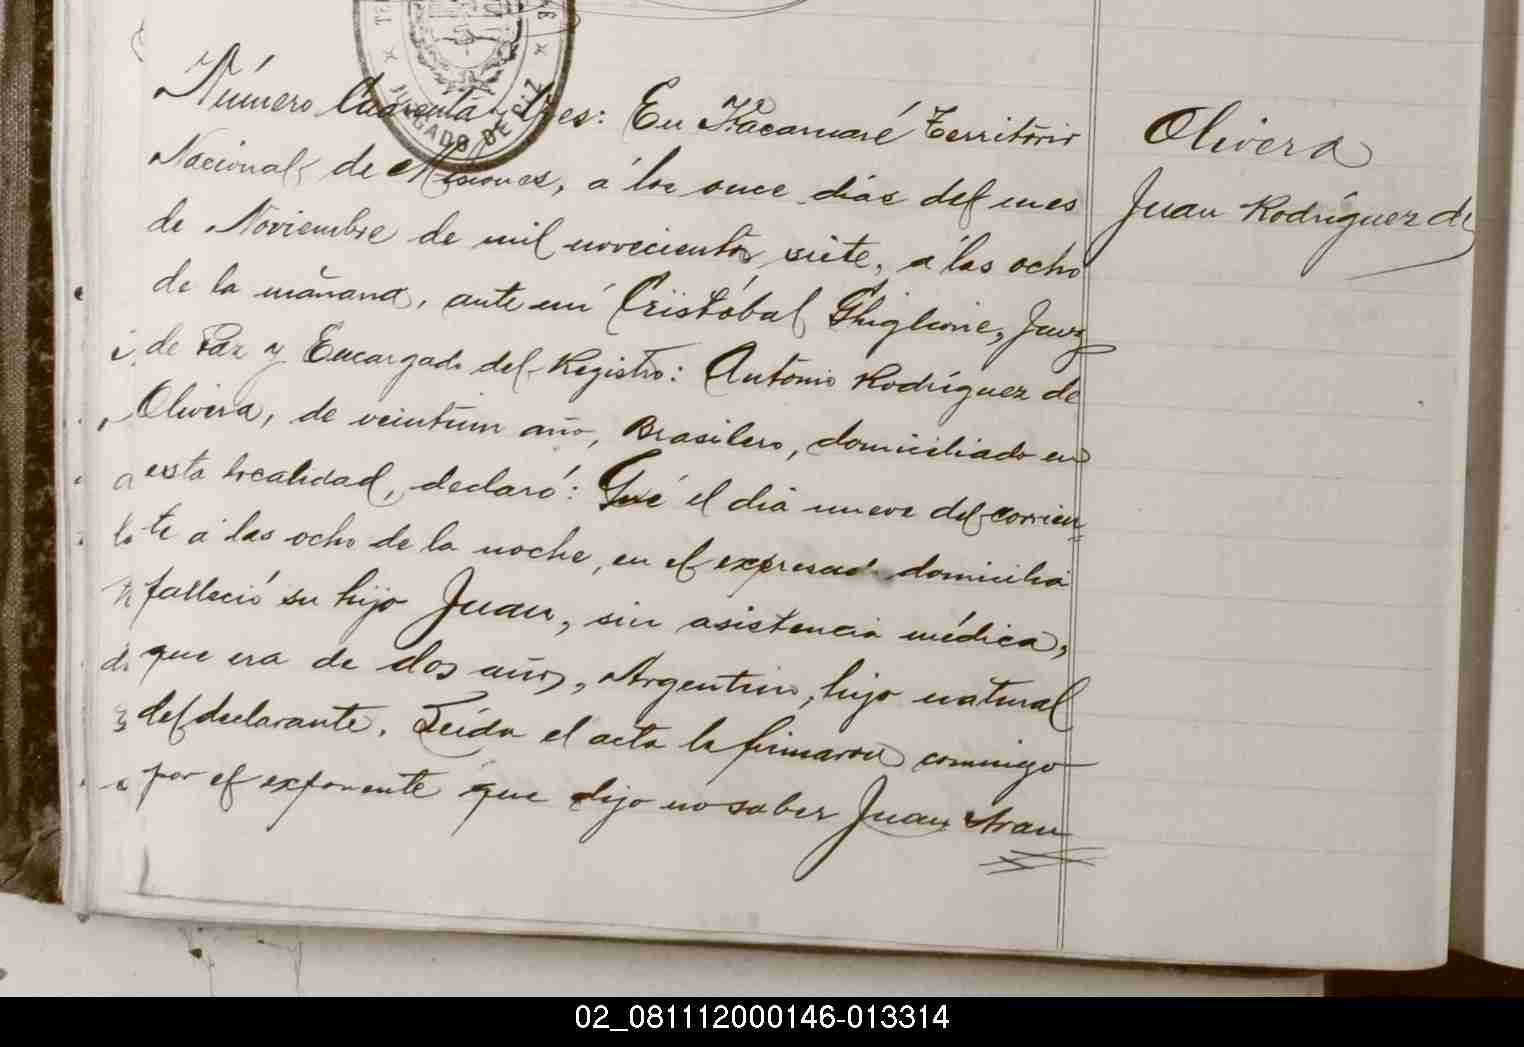 JUZGADO DE PAZ
Número Cuarenta y tres: En Itacaruaré Territorio
Nacional de Misiones, á los once días del mes
de Noviembre de mil novecientos siete, á las ocho
de la mañana, ante mi Cristóbal Ghiglione, Juez
de Paz y Encargado del Registro: Antonio Rodríguez de
Olivera, de veintiun año, Brasilero, domiciliado en
esta localidad, declaró: Qué el dia nueve del corrien
te á las ocho de la noche, en el expresado domicilio
falleció su hijo Juan, sin asistencia médica,
que era de dos años, Argentino, hijo natural
del declarante. Leída el acta la firmaron conmigo
por el exponente que dijo no saber Juan Aran
Olivera
Juan Rodríguez de
02_081112000146-013314